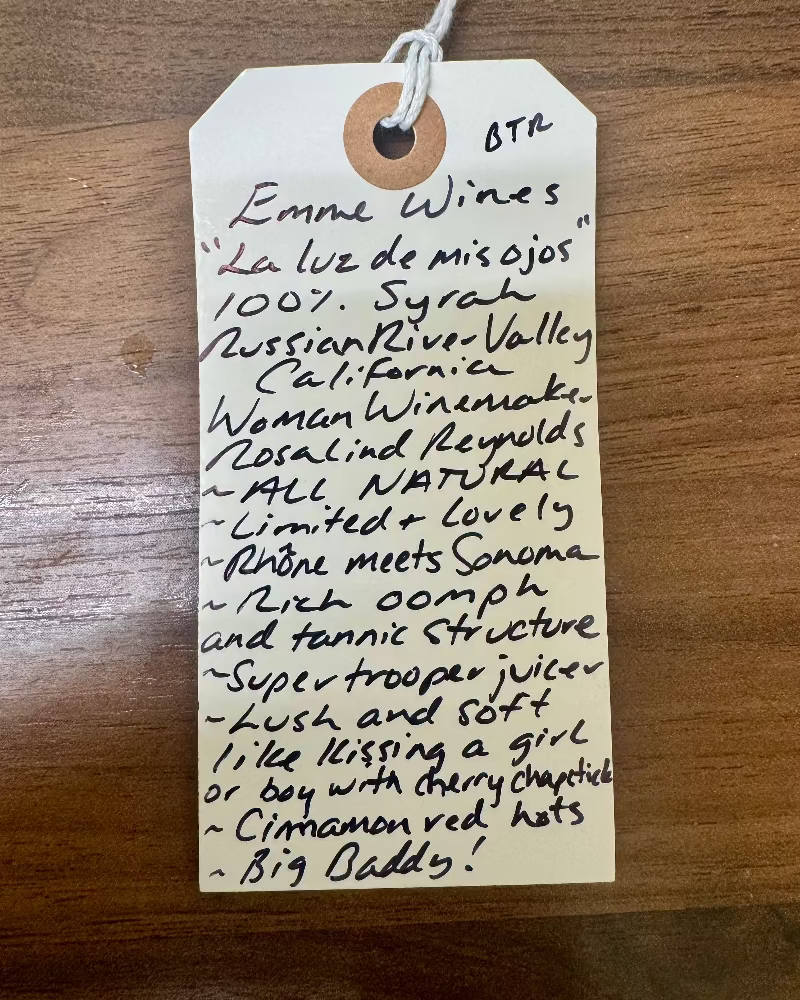 BTR
Emme Wines
"La luz de mis ojos"
100% Syrah
Russian River Valley
California
Woman Winemaker
Rosalind Reynolds
~ ALL NATURAL
~ Limited + Lovely
~ Rhône meets Sonoma
~ Rich oomph
and tannic structure
~ Super trooper juicer
~ Lush and soft
like kissing a girl
or boy with cherry chapstick
~ Cinnamon red hots
~ Big Baddy!